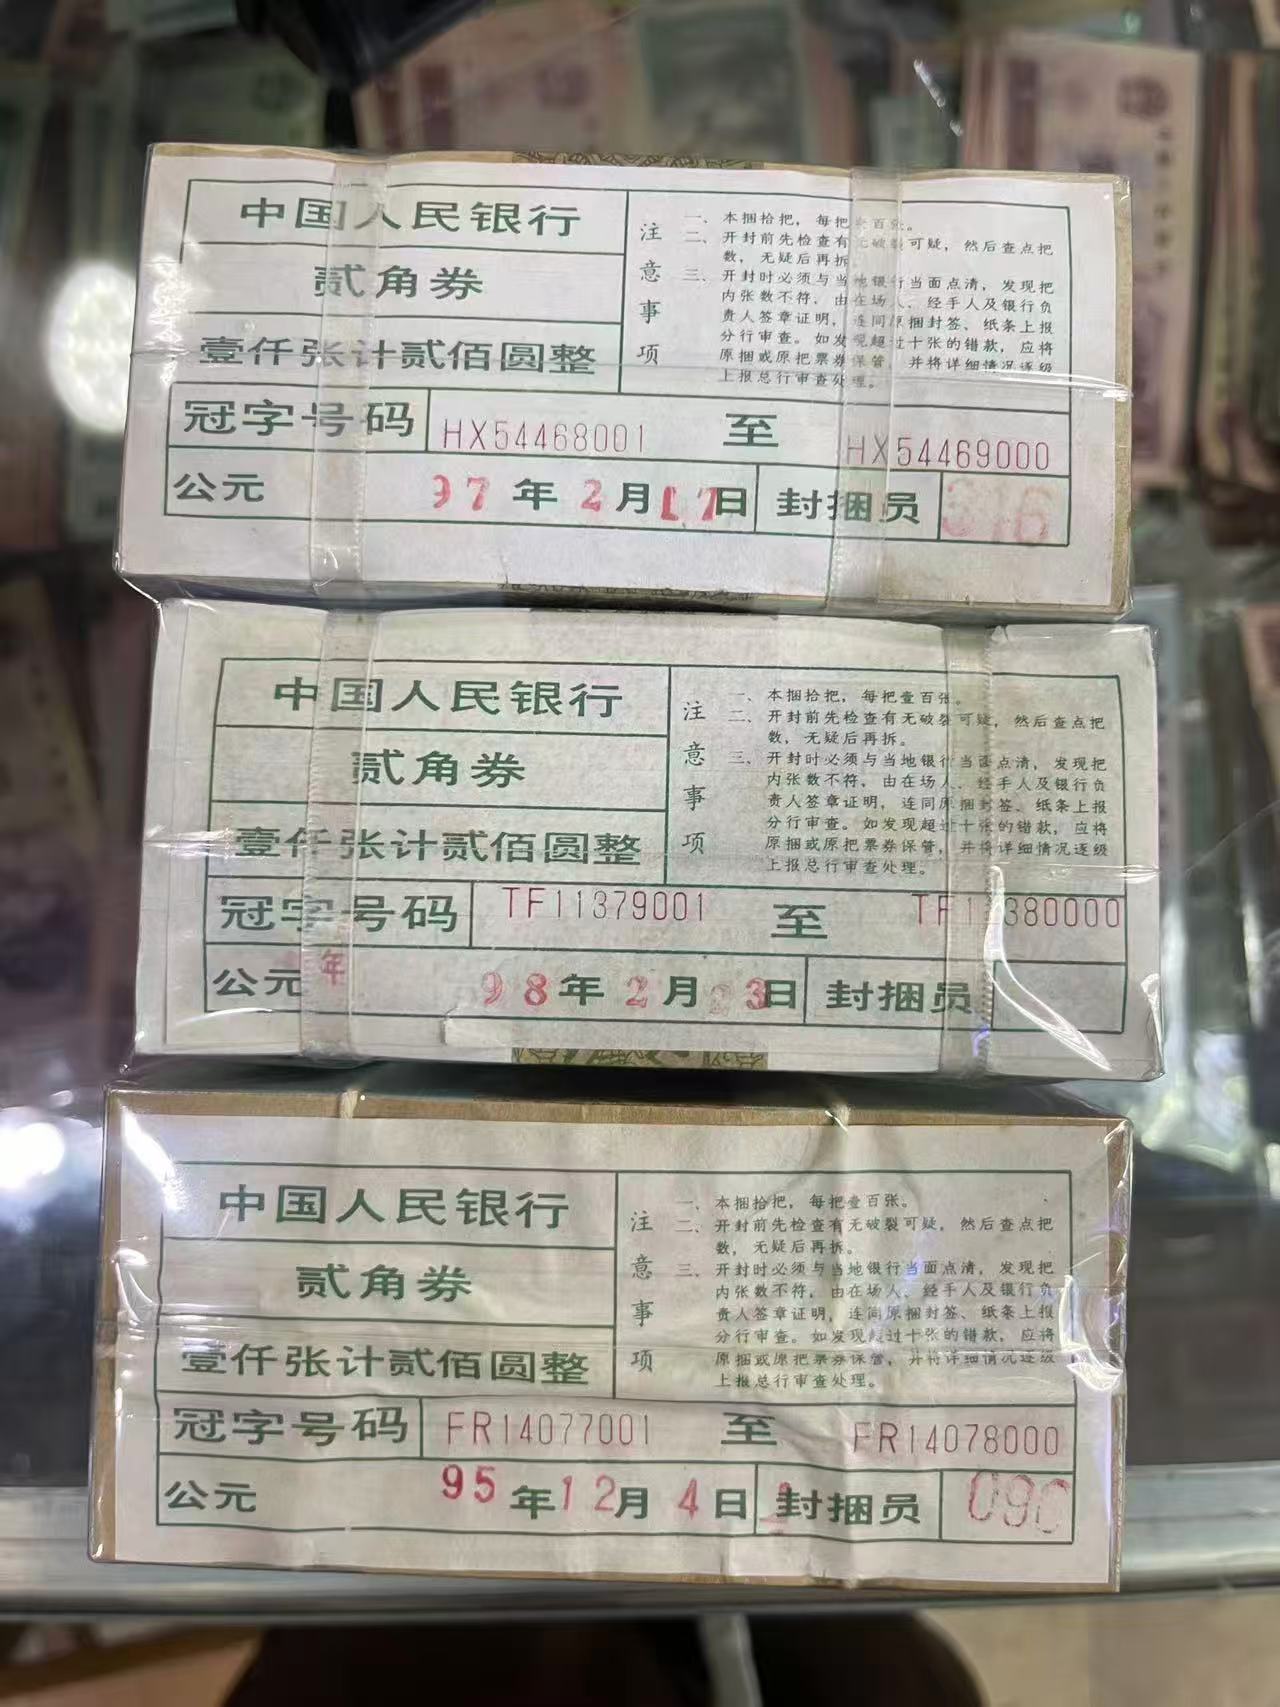 中国人民银行
贰角券
壹仟张计贰佰圆整
注意事项
一、本捆拾把，每把壹百张。
二、开封前先检查有无破裂可疑，然后查点把
数，无疑后再拆。
三、开封时必须与当地银行当面点清，发现把
内张数不符，由在场人、经手人及银行负
责人签章证明，连同原捆封签、纸条上报
分行审查。如发现超过十张的错款，应将
原捆或原把票券保管，并将详细情况逐级
上报总行审查处理。
冠字号码 HX54468001 至 HX54469000
公元 97年2月17日 封捆员 316
中国人民银行
贰角券
壹仟张计贰佰圆整
注意事项
一、本捆拾把，每把壹百张。
二、开封前先检查有无破裂可疑，然后查点把
数，无疑后再拆。
三、开封时必须与当地银行当面点清，发现把
内张数不符，由在场人、经手人及银行负
责人签章证明，连同原捆封签、纸条上报
分行审查。如发现超过十张的错款，应将
原捆或原把票券保管，并将详细情况逐级
上报总行审查处理。
冠字号码 TF11379001 至 TF11380000
年
公元 98年2月23日 封捆员
中国人民银行
贰角券
壹仟张计贰佰圆整
注意事项
一、本捆拾把，每把壹百张。
二、开封前先检查有无破裂可疑，然后查点把
数，无疑后再拆。
三、开封时必须与当地银行当面点清，发现把
内张数不符，由在场人、经手人及银行负
责人签章证明，连同原捆封签、纸条上报
分行审查。如发现超过十张的错款，应将
原捆或原把票券保管，并将详细情况逐级
上报总行审查处理。
冠字号码 FR14077001 至 FR14078000
公元 95年12月4日 封捆员